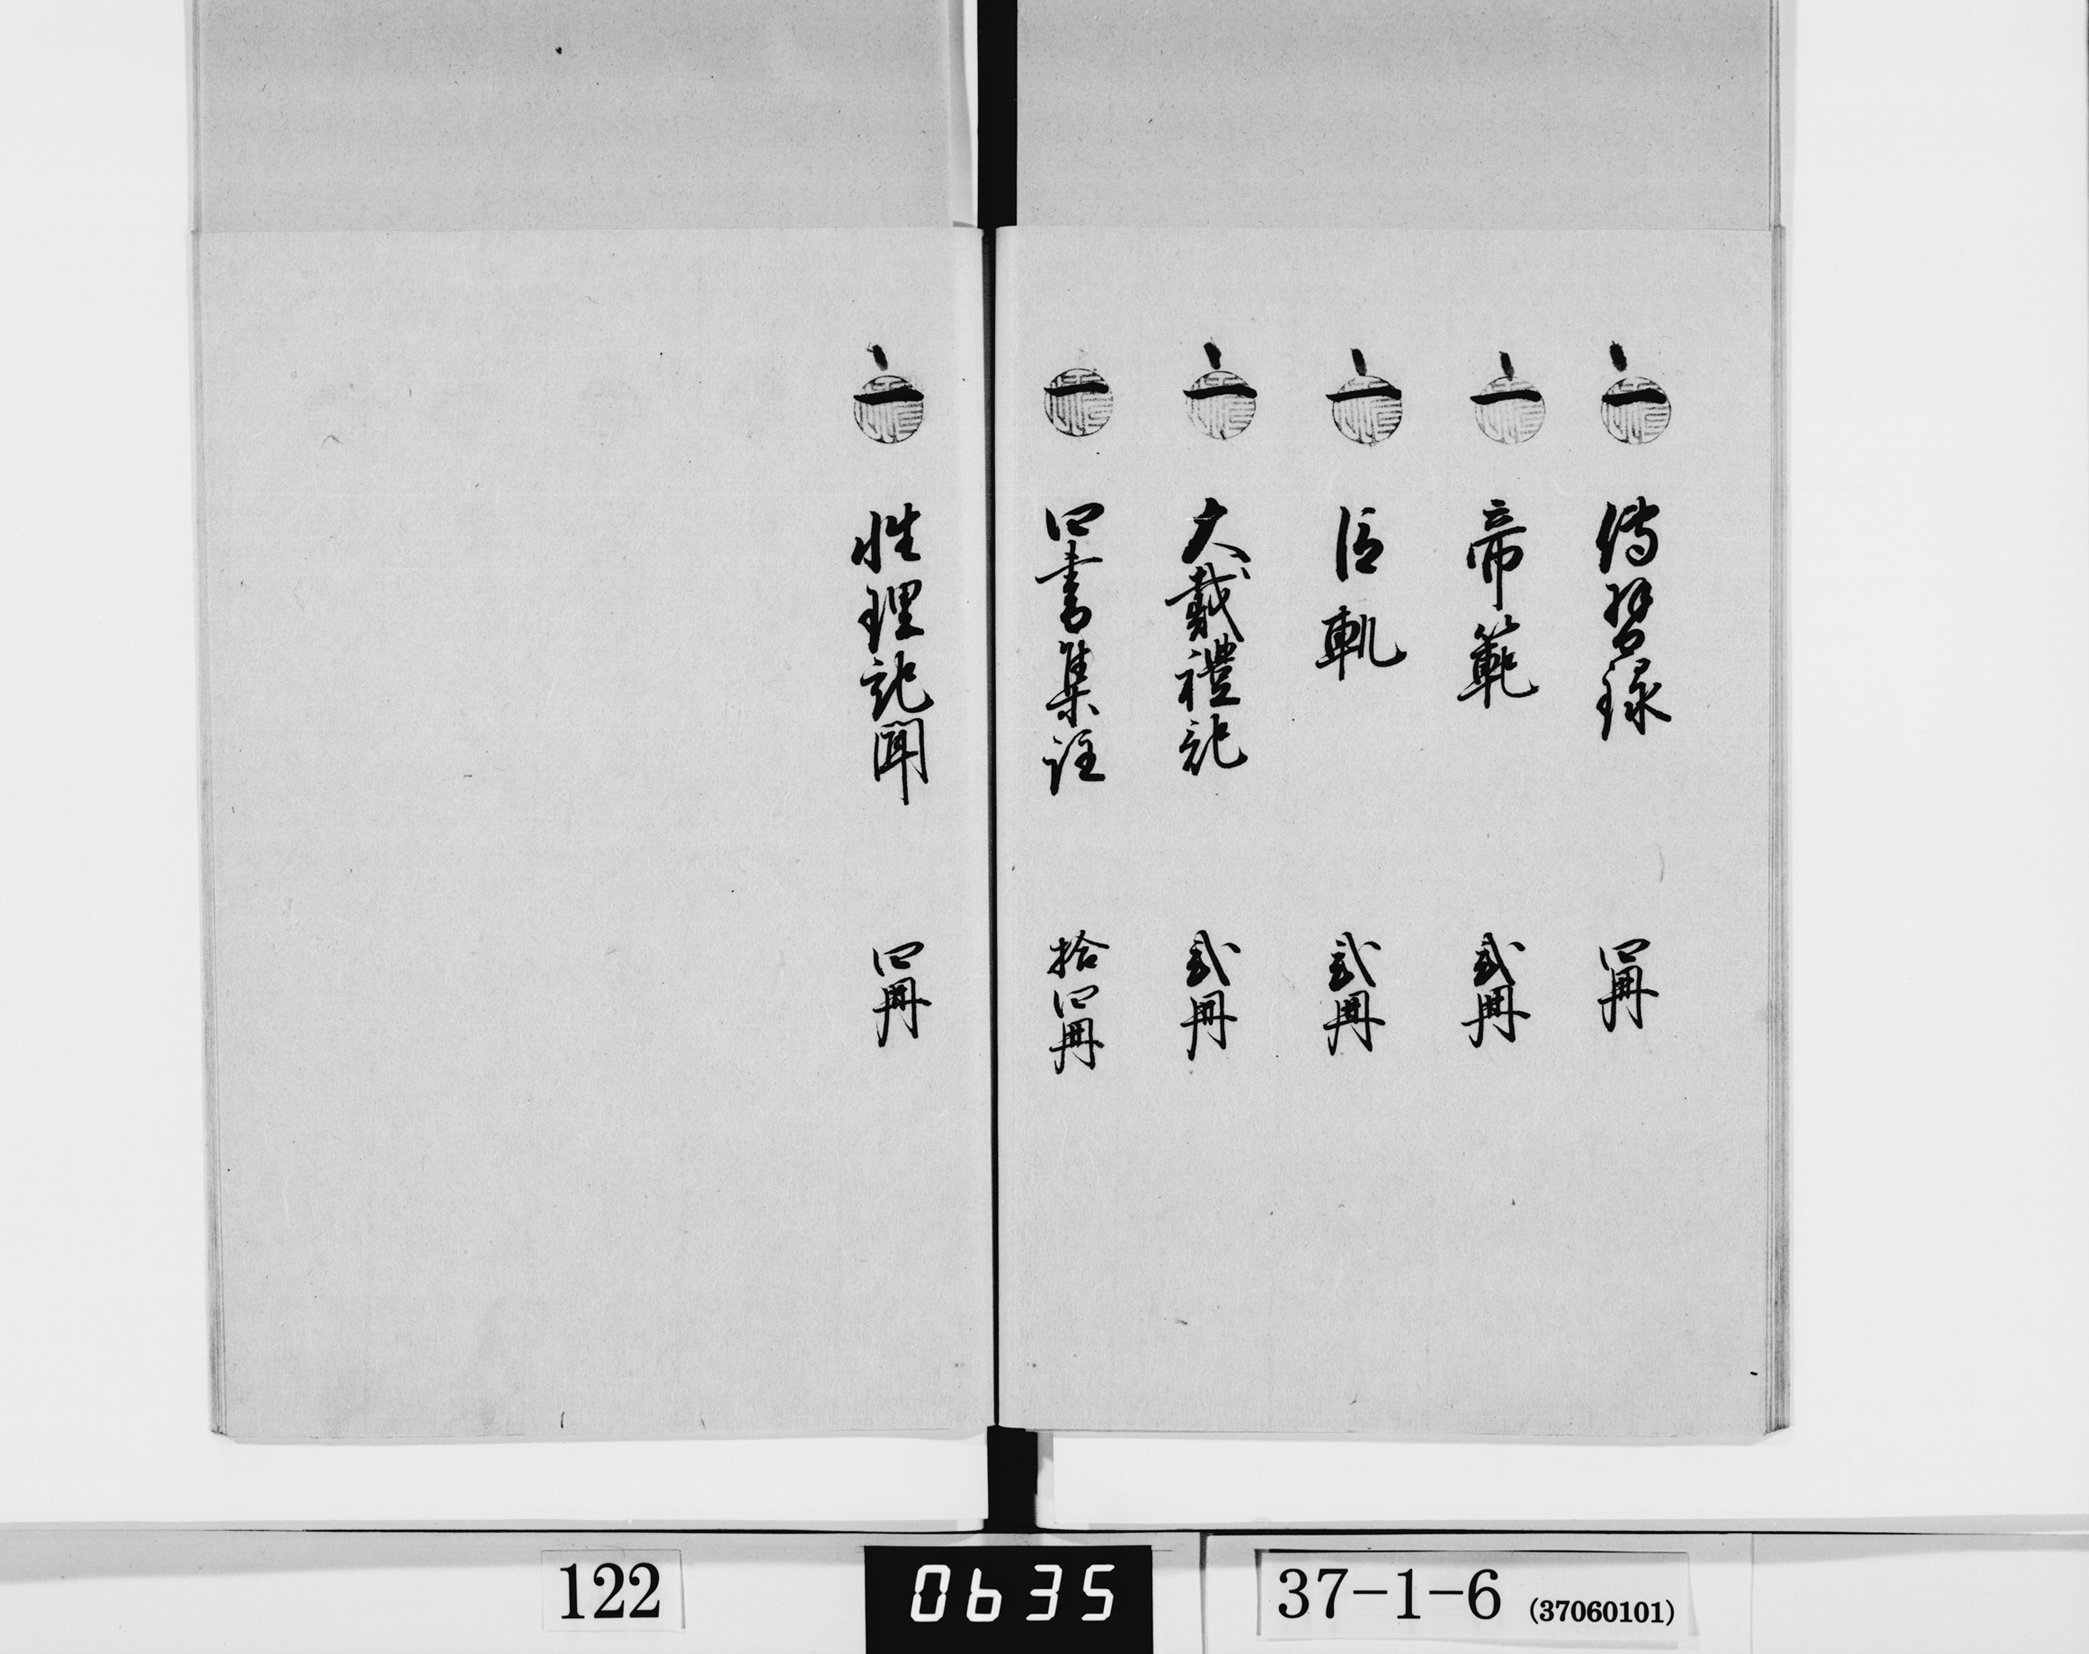 一 傳習録 四冊
一 帝範 貳冊
一 臣軌 貳冊
一 大戴禮記 貳冊
一 四書集註 拾四冊
一 性理記聞 四冊
122
0635
37-1-6 (37060101)